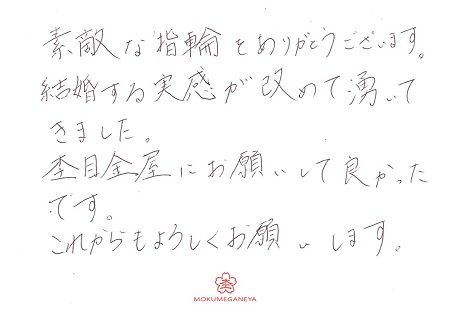 素敵な指輪をありがとうございます。
結婚する実感が改めて湧いて
きました。
杢目金屋にお願いして良かった
です。
これからもよろしくお願いします。
杢
MOKUMEGANEYA